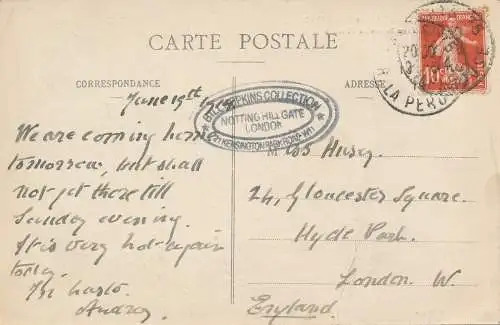 CARTE POSTALE
CORRESPONDANCE
ADRESSE
June 19th
COLLECTION
NOTTING HILL GATE
LONDON
KENSINGTON PARK ROAD W11
LA PER
10
We are coming home
tomorrow, but shall
not get there till
Sunday evening.
It is very hot again
today.
In haste.
Audrey
Miss Husey
24, Gloucester Square.
Hyde Park.
London. W.
England.